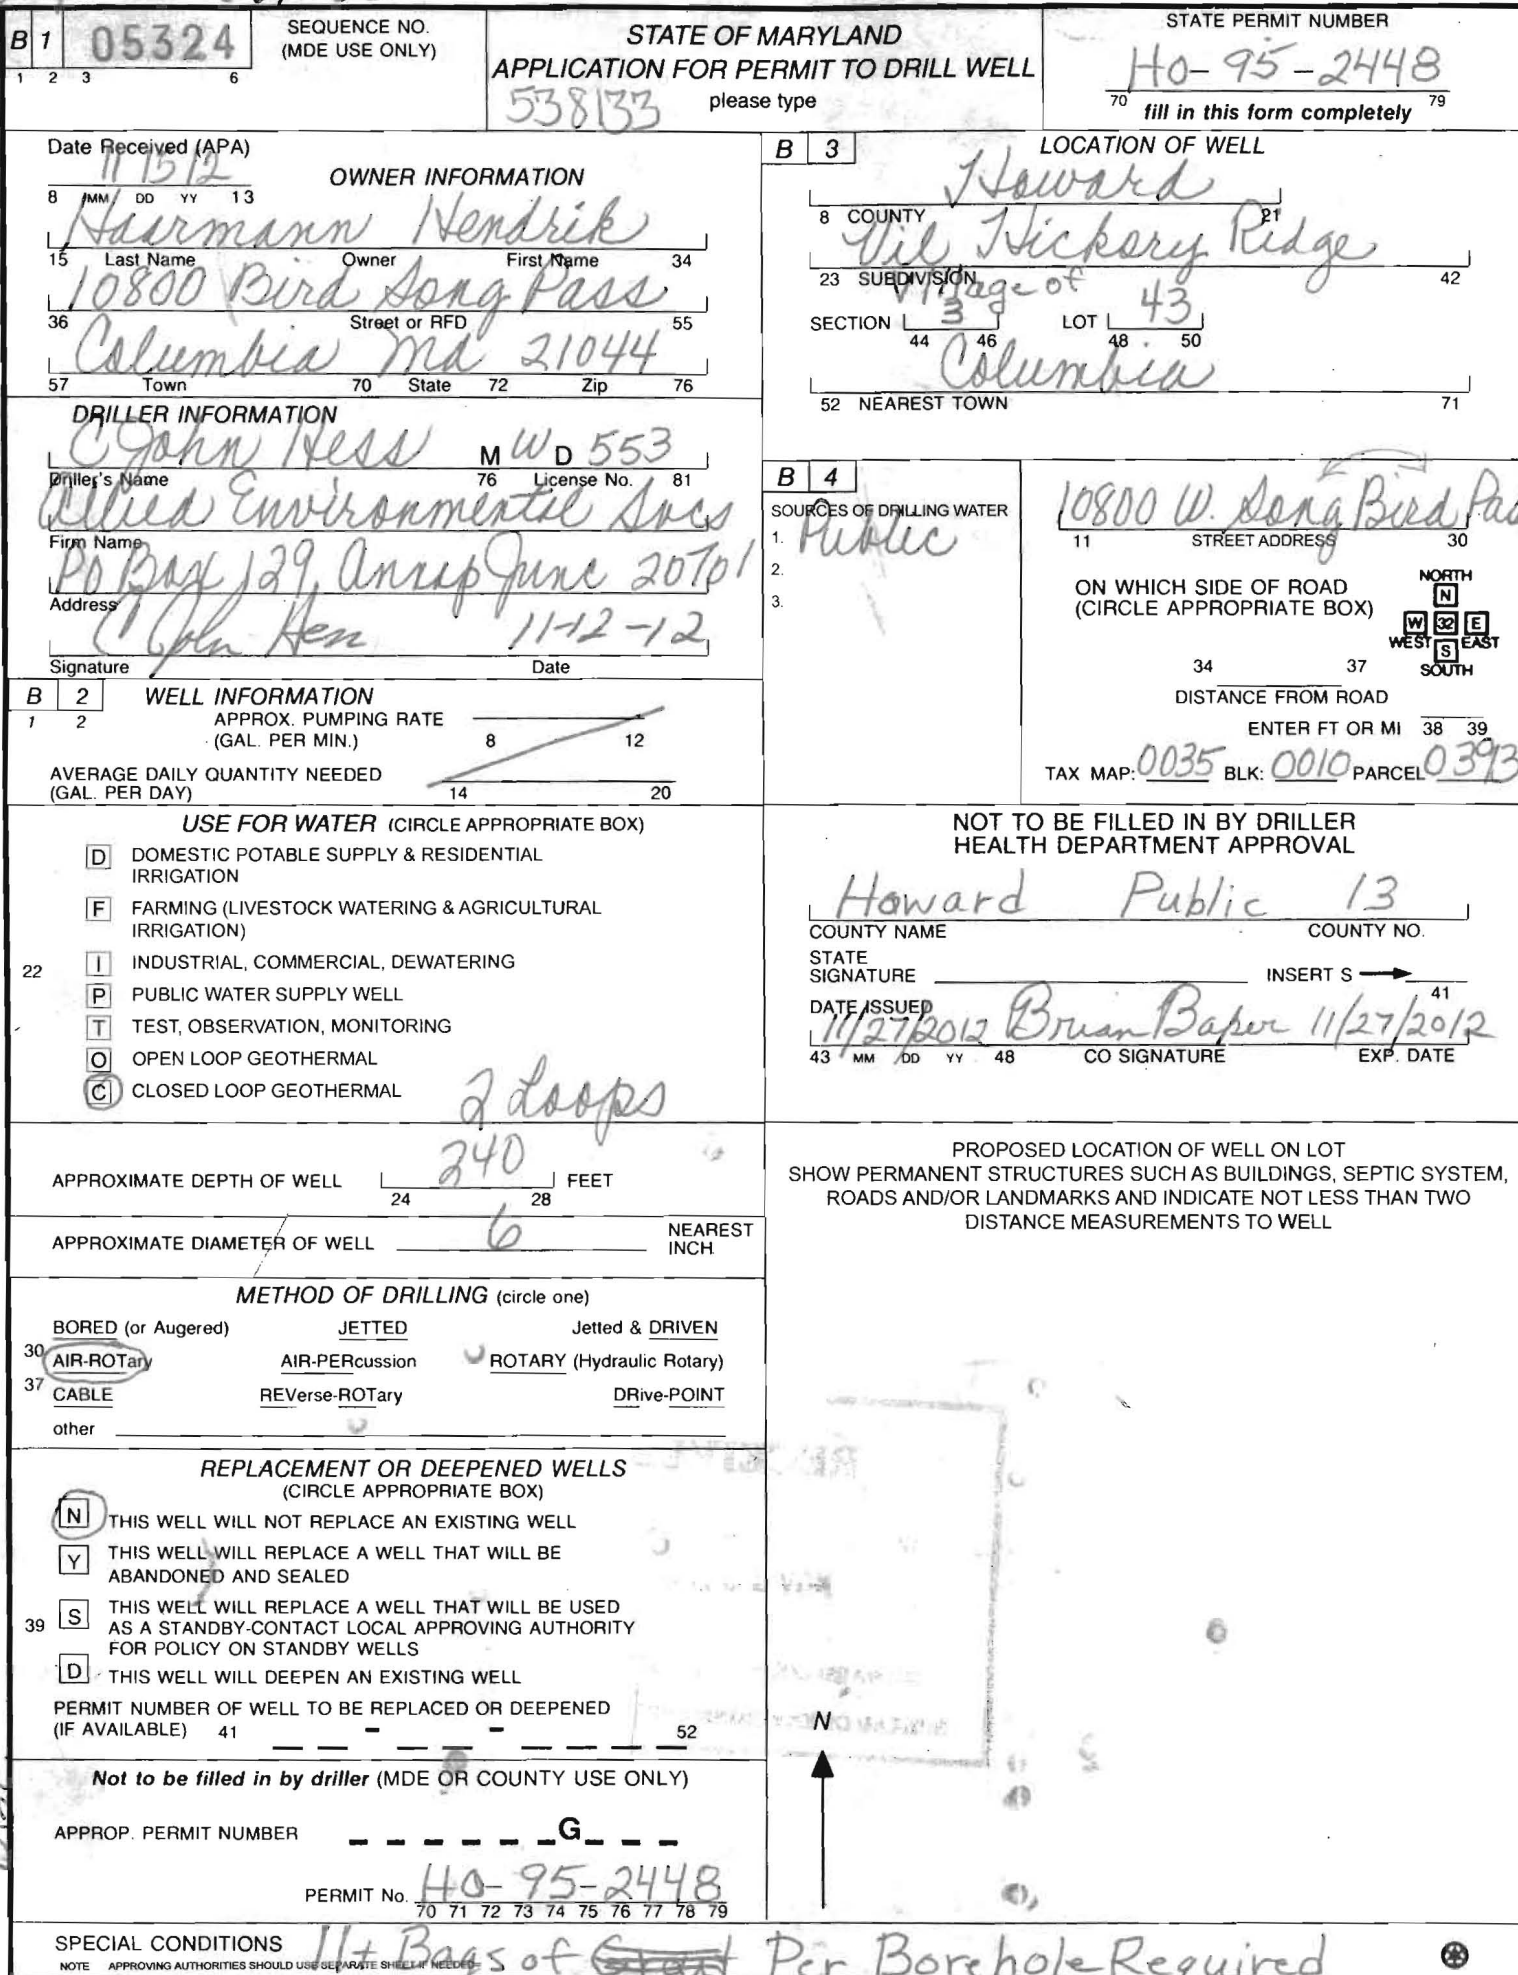 B 1 05324 SEQUENCE NO. (MDE USE ONLY)
1 2 3 6
STATE OF MARYLAND
APPLICATION FOR PERMIT TO DRILL WELL
please type
538133
STATE PERMIT NUMBER
HO-95-2448
70 fill in this form completely 79
Date Received (APA)
11 15 12
8 MM DD YY 13
OWNER INFORMATION
Haarmann Hendrik
15 Last Name Owner First Name 34
10800 Bird Song Pass
36 Street or RFD 55
Columbia Md 21044
57 Town 70 State 72 Zip 76
DRILLER INFORMATION
C John Hess M W D 553
Driller's Name 76 License No. 81
Allied Environmental Svcs
Firm Name
PO Box 129, Annap Junc 20701
Address
C John Hess 11-12-12
Signature Date
B 2 WELL INFORMATION
1 2
APPROX. PUMPING RATE
(GAL. PER MIN.) 8 12
AVERAGE DAILY QUANTITY NEEDED
(GAL. PER DAY) 14 20
USE FOR WATER (CIRCLE APPROPRIATE BOX)
D DOMESTIC POTABLE SUPPLY & RESIDENTIAL
IRRIGATION
F FARMING (LIVESTOCK WATERING & AGRICULTURAL
IRRIGATION)
22 I INDUSTRIAL, COMMERCIAL, DEWATERING
P PUBLIC WATER SUPPLY WELL
T TEST, OBSERVATION, MONITORING
O OPEN LOOP GEOTHERMAL
C CLOSED LOOP GEOTHERMAL 2 Loops
APPROXIMATE DEPTH OF WELL 240 FEET
24 28
APPROXIMATE DIAMETER OF WELL 6 NEAREST
INCH
METHOD OF DRILLING (circle one)
BORED (or Augered) JETTED Jetted & DRIVEN
30 AIR-ROTary AIR-PERcussion ROTARY (Hydraulic Rotary)
37 CABLE REVerse-ROTary DRive-POINT
other
REPLACEMENT OR DEEPENED WELLS
(CIRCLE APPROPRIATE BOX)
N THIS WELL WILL NOT REPLACE AN EXISTING WELL
Y THIS WELL WILL REPLACE A WELL THAT WILL BE
ABANDONED AND SEALED
39 S THIS WELL WILL REPLACE A WELL THAT WILL BE USED
AS A STANDBY-CONTACT LOCAL APPROVING AUTHORITY
FOR POLICY ON STANDBY WELLS
D THIS WELL WILL DEEPEN AN EXISTING WELL
PERMIT NUMBER OF WELL TO BE REPLACED OR DEEPENED
(IF AVAILABLE) 41 - - 52
Not to be filled in by driller (MDE OR COUNTY USE ONLY)
APPROP. PERMIT NUMBER G
PERMIT No. HO-95-2448
70 71 72 73 74 75 76 77 78 79
B 3 LOCATION OF WELL
Howard
8 COUNTY 21
Vil Hickory Ridge
23 SUBDIVISION 42
Village of
SECTION 3 LOT 43
44 46 48 50
Columbia
52 NEAREST TOWN 71
B 4
SOURCES OF DRILLING WATER
1. Public
2.
3.
10800 W. Song Bird Pas
11 STREET ADDRESS 30
ON WHICH SIDE OF ROAD
(CIRCLE APPROPRIATE BOX)
NORTH
N
W 32 E
WEST S EAST
SOUTH
34 37
DISTANCE FROM ROAD
ENTER FT OR MI 38 39
TAX MAP: 0035 BLK: 0010 PARCEL 0393
NOT TO BE FILLED IN BY DRILLER
HEALTH DEPARTMENT APPROVAL
Howard Public 13
COUNTY NAME COUNTY NO.
STATE
SIGNATURE INSERT S
41
DATE ISSUED
11/27/2012 Brian Baker 11/27/2012
43 MM DD YY 48 CO SIGNATURE EXP. DATE
PROPOSED LOCATION OF WELL ON LOT
SHOW PERMANENT STRUCTURES SUCH AS BUILDINGS, SEPTIC SYSTEM,
ROADS AND/OR LANDMARKS AND INDICATE NOT LESS THAN TWO
DISTANCE MEASUREMENTS TO WELL
N
SPECIAL CONDITIONS 11+ Bags of Grout Per Borehole Required
NOTE APPROVING AUTHORITIES SHOULD USE SEPARATE SHEET IF NEEDED